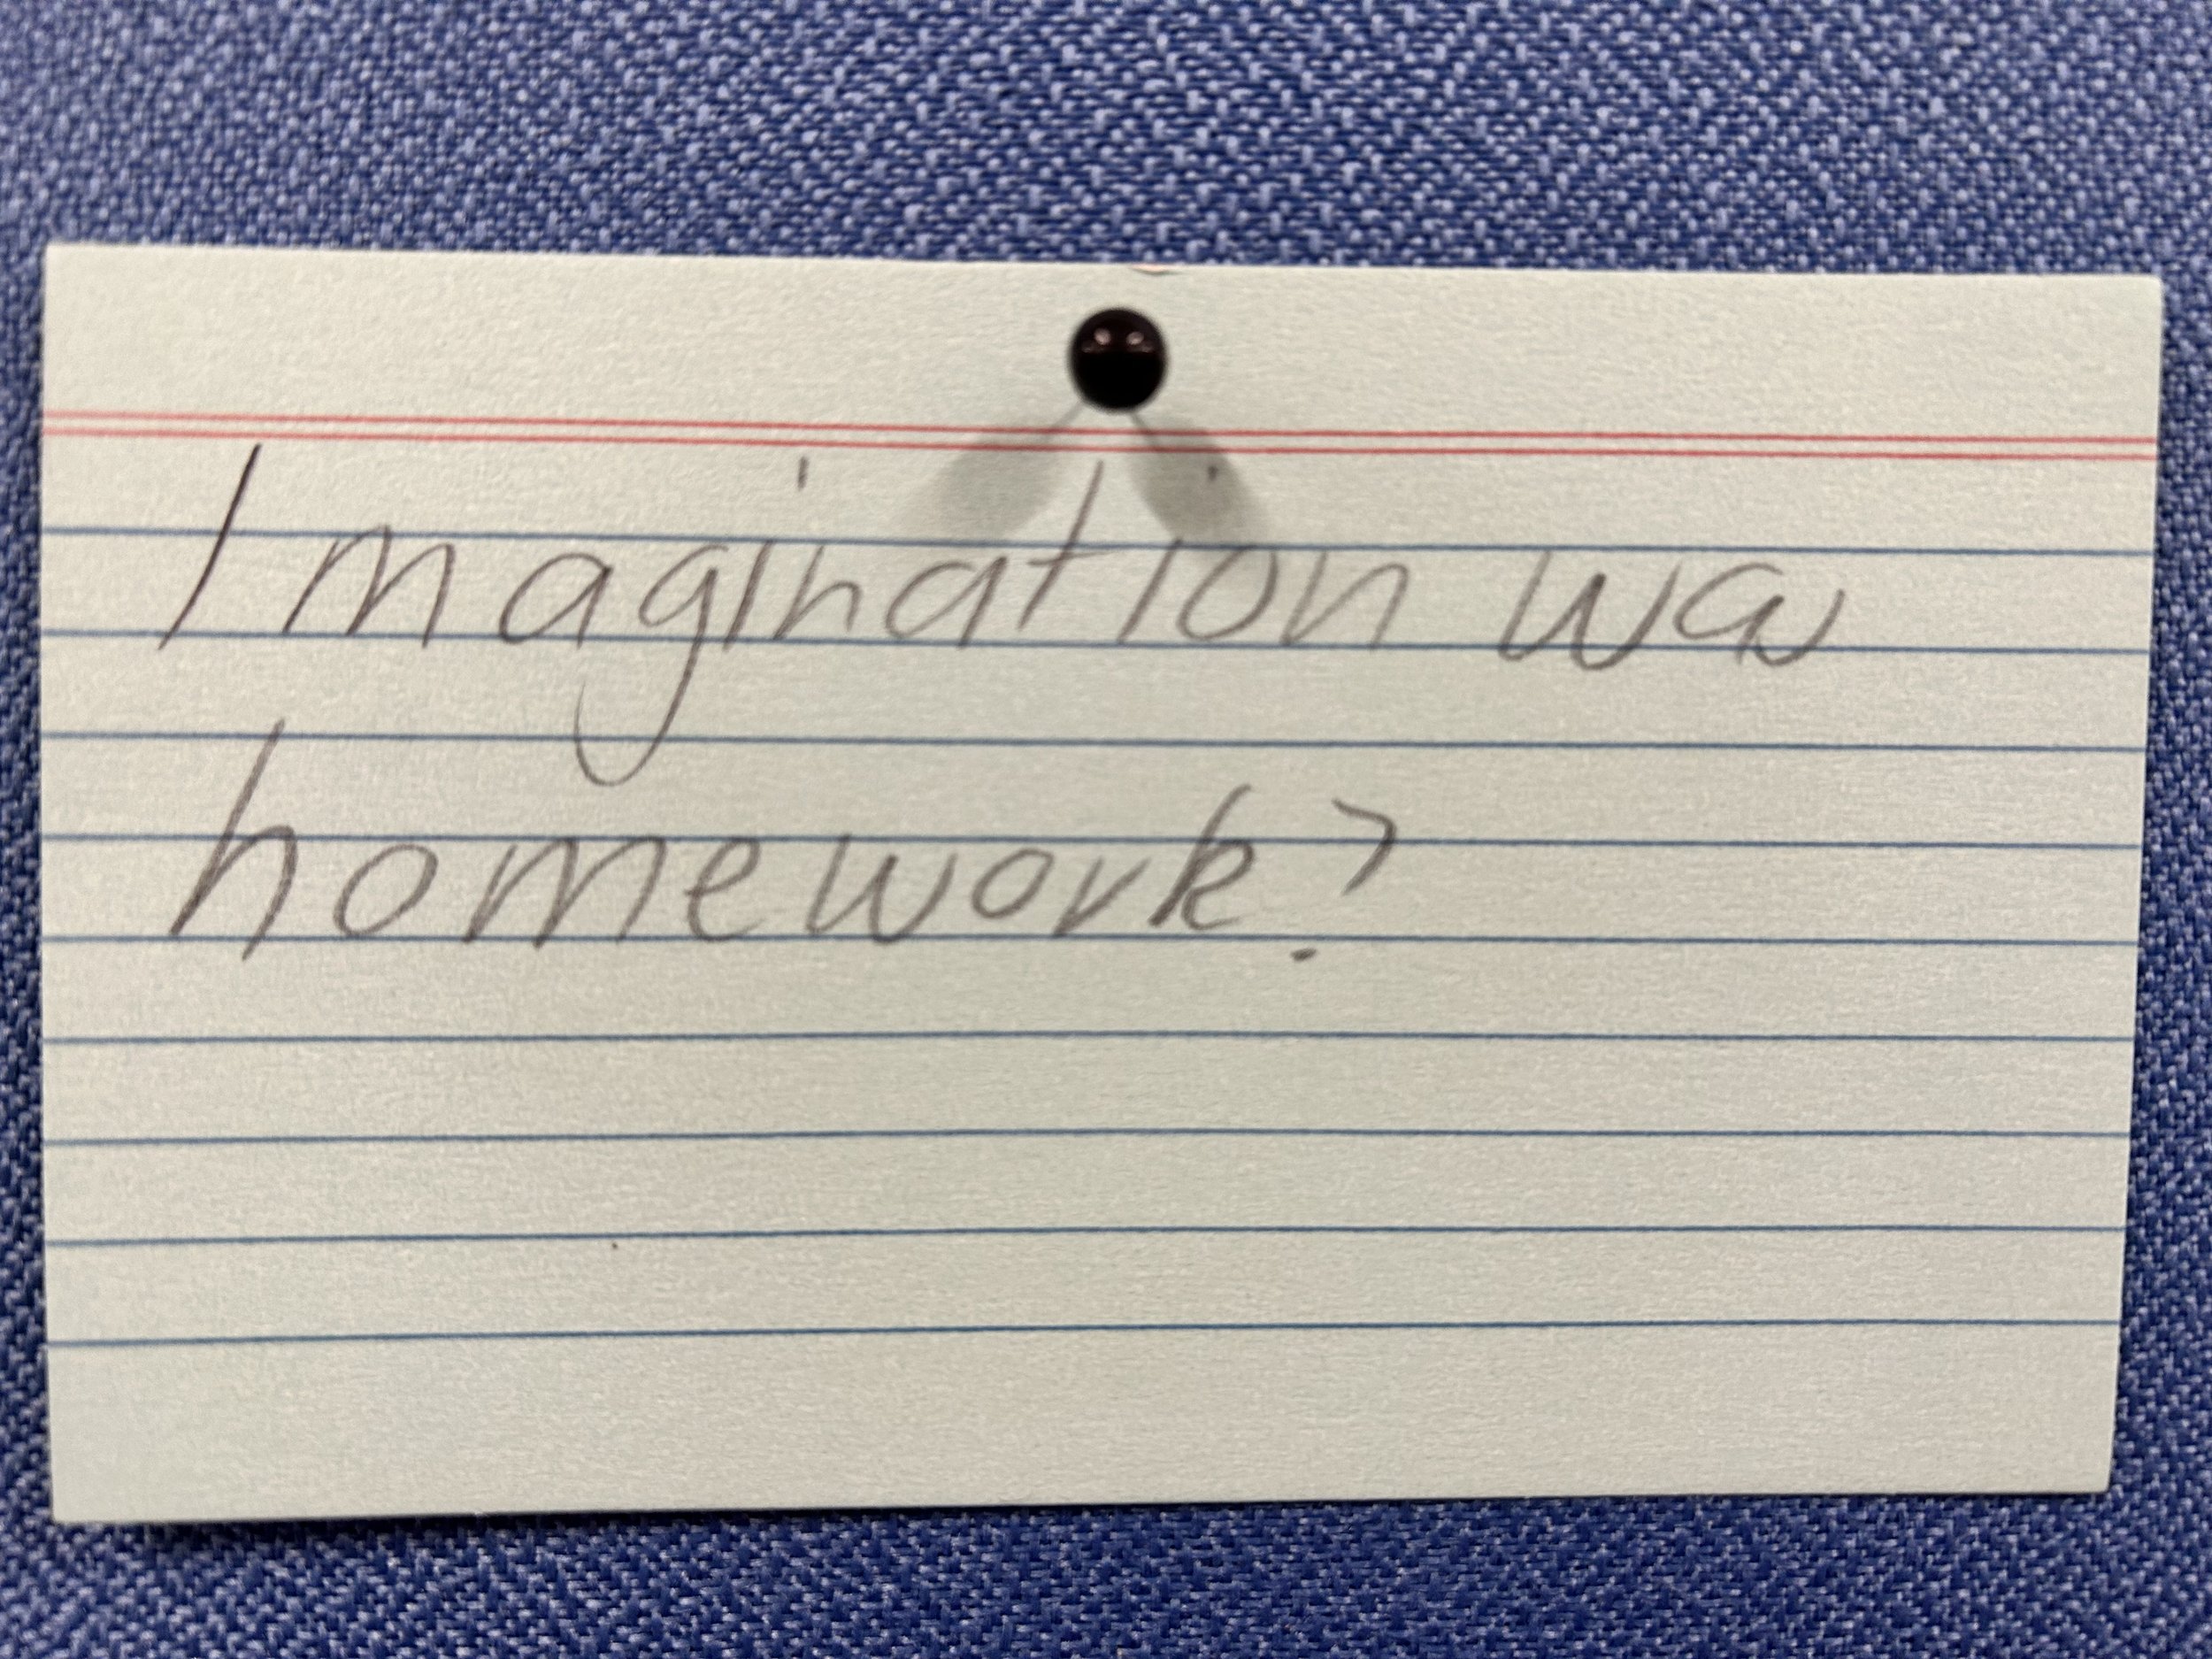 Imagination was
homework?